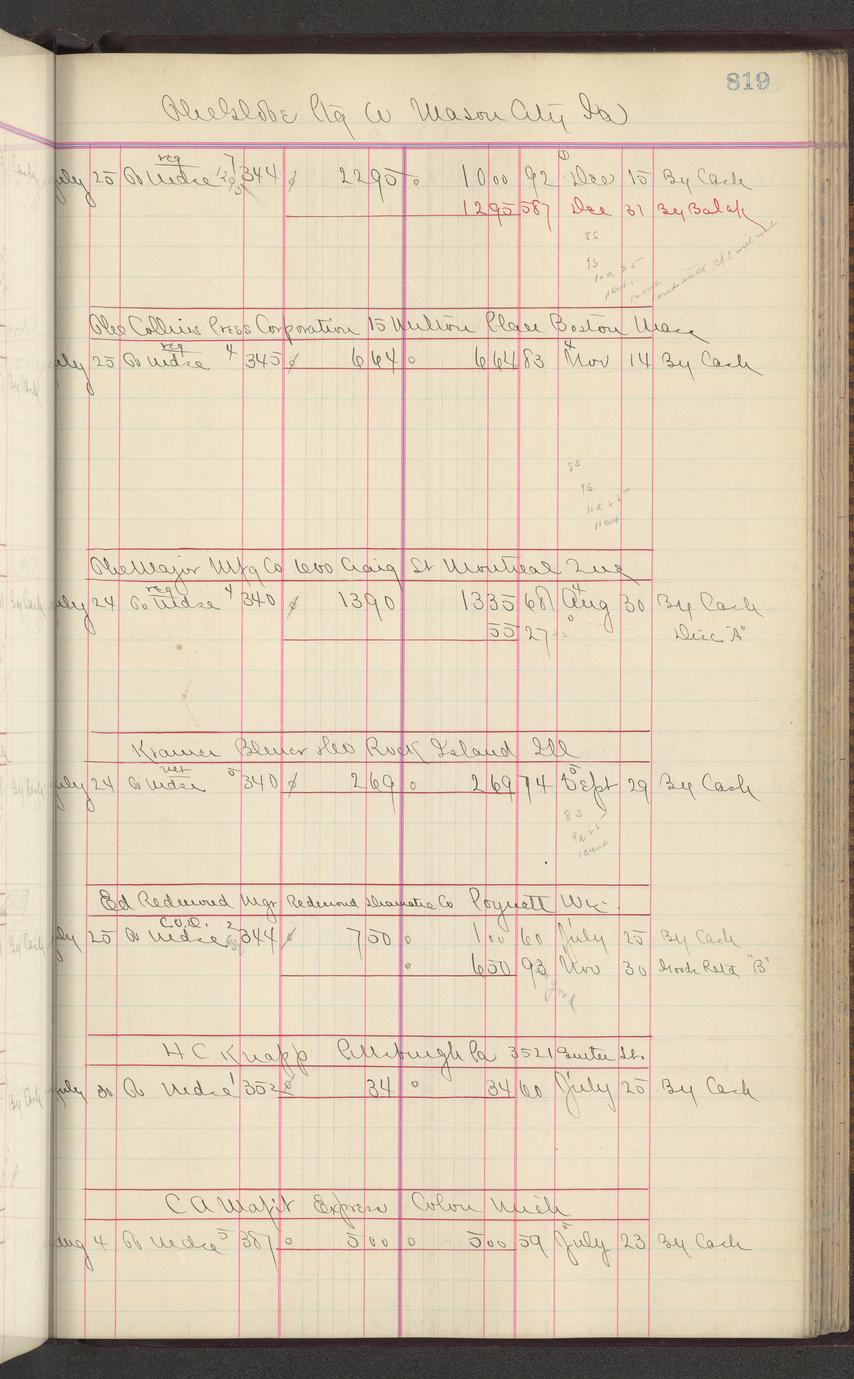 819
The Globe Ptg Co Mason City Ia
reg 7
July 25 To Mdse 344 2295 1000 92 Dec 15 By Cash
1295 587 Dec 31 By Balce
8S
9S
10a25
The Collins Press Corporation 15 Milton Place Boston Mass
reg 4
July 25 To Mdse 345 664 664 83 Nov 14 By Cash
8S
9S
10a25
11out
The Major Mfg Co 600 Craig St Montreal Que
reg 4
July 24 To Mdse 340 1390 1335 68 Aug 30 By Cash
55 27 Disc "A"
Kramer Rock Island Ill
net 5
July 24 To Mdse 340 269 269 74 Sept 29 By Cash
8S
9a25
10out
Ed Redmond Mgr Redmond Dramatic Co Poynett Wis.
C.O.D. 2
July 25 To Mdse 344 750 100 60 July 25 By Cash
650 93 Nov 30 Goods Retd "B"
H C Knapp Pittsburgh Pa 3521 Butler St.
July 30 To Mdse 1 352 34 34 60 July 25 By Cash
C A Express Colon Mich
Aug 4 To Mdse 5 387 500 500 59 July 23 By Cash